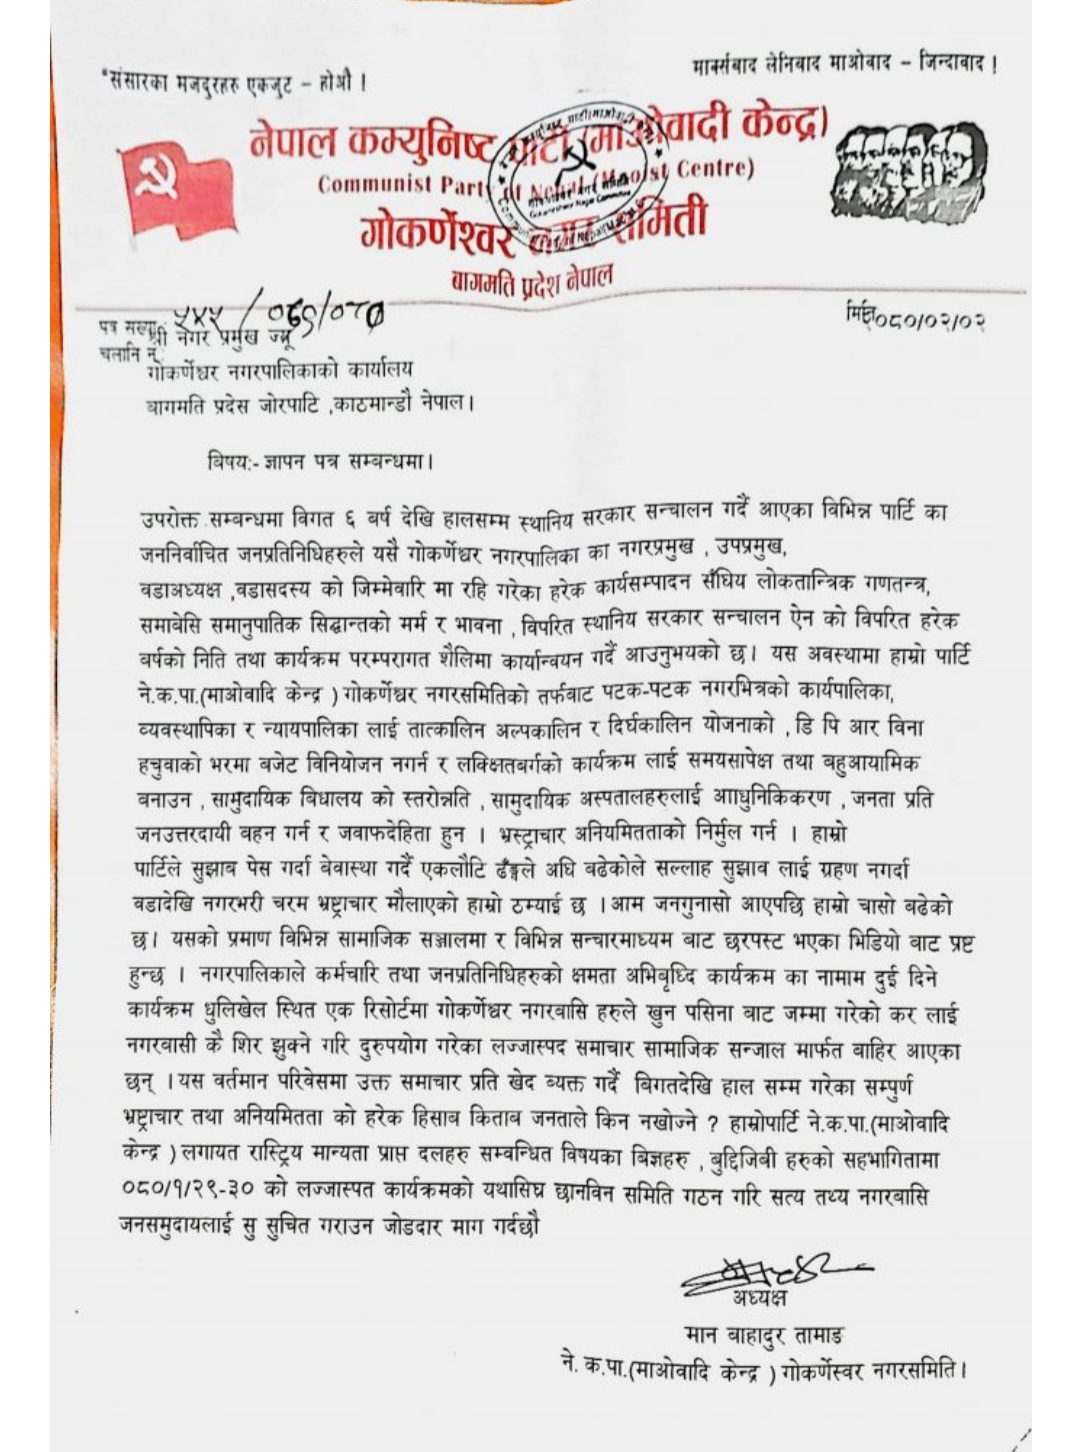 "संसारका मजदुरहरु एकजुट – होऔ ।
मार्क्सबाद लेनिबाद माओवाद – जिन्दाबाद !
नेपाल कम्युनिष्ट पार्टी (माओवादी केन्द्र)
Communist Party of Nepal (Maoist Centre)
गोकर्णेश्वर नगर समिती
बागमति प्रदेश नेपाल
पत्र संख्याः ५४५ / ०७९/०८०
मिति०८०/०२/०२
श्री नगर प्रमुख ज्यू
चलानि नं
गोकर्णेश्वर नगरपालिकाको कार्यालय
बागमति प्रदेस जोरपाटि ,काठमान्डौ नेपाल।
बिषयः- ज्ञापन पत्र सम्बन्धमा।
उपरोक्त सम्बन्धमा विगत ६ बर्ष देखि हालसम्म स्थानिय सरकार सन्चालन गर्दै आएका विभिन्न पार्टि का
जननिर्वाचित जनप्रतिनिधिहरुले यसै गोकर्णेश्वर नगरपालिका का नगरप्रमुख , उपप्रमुख,
वडाअध्यक्ष ,वडासदस्य को जिम्मेवारि मा रहि गरेका हरेक कार्यसम्पादन सँघिय लोकतान्त्रिक गणतन्त्र,
समाबेसि समानुपातिक सिद्धान्तको मर्म र भावना , विपरित स्थानिय सरकार सन्चालन ऐन को विपरित हरेक
बर्षको निति तथा कार्यक्रम परम्परागत शैलिमा कार्यान्वयन गर्दै आउनुभयको छ। यस अवस्थामा हाम्रो पार्टि
ने.क.पा.(माओवादि केन्द्र ) गोकर्णेश्वर नगरसमितिको तर्फबाट पटक-पटक नगरभित्रको कार्यपालिका,
व्यवस्थापिका र न्यायपालिका लाई तात्कालिन अल्पकालिन र दिर्घकालिन योजनाको , डि पि आर विना
हचुवाको भरमा बजेट विनियोजन नगर्न र लक्क्षितबर्गको कार्यक्रम लाई समयसापेक्ष तथा बहुआयामिक
बनाउन , सामुदायिक बिधालय को स्तरोन्नति , सामुदायिक अस्पतालहरुलाई आाधुनिकिकरण , जनता प्रति
जनउत्तरदायी वहन गर्न र जवाफदेहिता हुन । भ्रस्ट्राचार अनियमितताको निर्मुल गर्न । हाम्रो
पार्टिले सुझाब पेस गर्दा बेवास्था गर्दै एकलौटि ढँङ्गले अघि बढेकोले सल्लाह सुझाव लाई ग्रहण नगर्दा
वडादेखि नगरभरी चरम भ्रष्ट्राचार मौलाएको हाम्रो ठम्याई छ । आम जनगुनासो आएपछि हाम्रो चासो बढेको
छ। यसको प्रमाण विभिन्न सामाजिक सञ्जालमा र विभिन्न सन्चारमाध्यम बाट छरपस्ट भएका भिडियो बाट प्रष्ट
हुन्छ । नगरपालिकाले कर्मचारि तथा जनप्रतिनिधिहरुको क्षमता अभिबृध्दि कार्यक्रम का नामाम दुई दिने
कार्यक्रम धुलिखेल स्थित एक रिसोर्टमा गोकर्णेश्वर नगरबासि हरुले खुन पसिना बाट जम्मा गरेको कर लाई
नगरबासी कै शिर झुक्ने गरि दुरुपयोग गरेका लज्जास्पद समाचार सामाजिक सन्जाल मार्फत बाहिर आएका
छन् । यस वर्तमान परिवेसमा उक्त समाचार प्रति खेद व्यक्त गर्दै बिगतदेखि हाल सम्म गरेका सम्पुर्ण
भ्रष्ट्राचार तथा अनियमितता को हरेक हिसाब किताब जनताले किन नखोज्ने ? हाम्रोपार्टि ने.क.पा.(माओवादि
केन्द्र ) लगायत रास्ट्रिय मान्यता प्राप्त दलहरु सम्वन्धित विषयका बिज्ञहरु , बुद्दिजिबी हरुको सहभागितामा
०८०/१/२९-३० को लज्जास्पत कार्यक्रमको यथासिघ्र छानविन समिति गठन गरि सत्य तथ्य नगरबासि
जनसमुदायलाई सु सुचित गराउन जोडदार माग गर्दछौ
अध्यक्ष
मान बाहादुर तामाङ
ने. क.पा.(माओवादि केन्द्र ) गोकर्णेस्वर नगरसमिति।